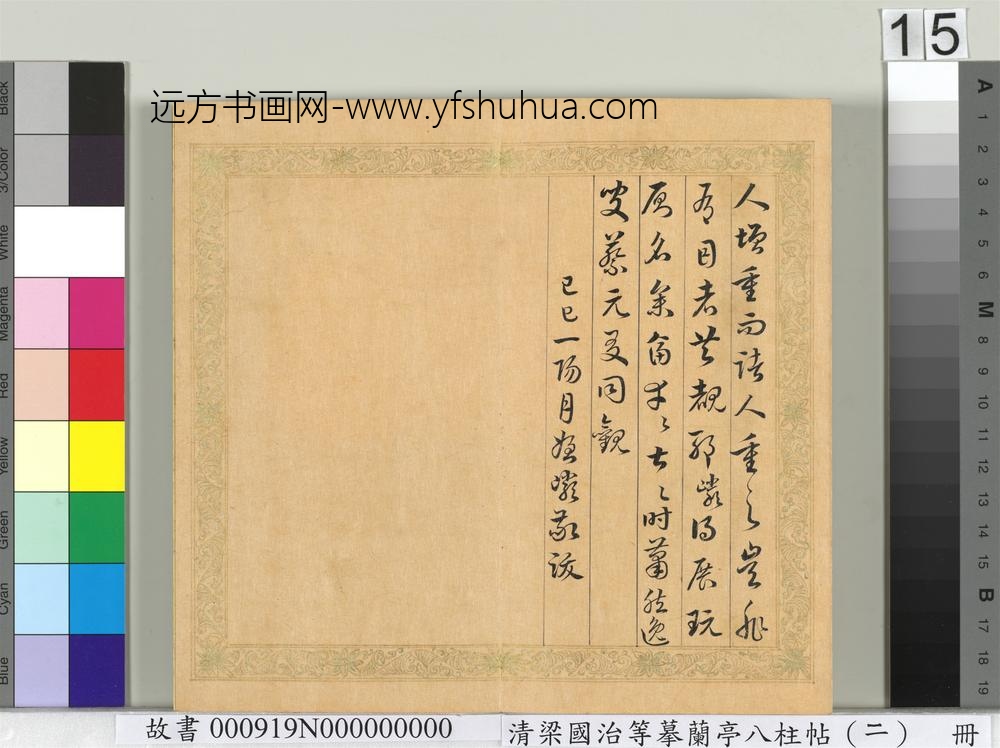 15
远方书画网-www.yfshuhua.com
人增重而諸人重之豈非
有目者共覩耶得展玩
名幸〻甚〻时蕭然逸
叟蔡元友同觀
己巳一陽月敬跋
Black
3/Color
White
Magenta
Red
Yellow
Green
Cyan
Blue
A
1
2
3
4
5
6
M
8
9
10
11
12
13
14
15
B
17
18
19
故書 000919N000000000
清梁國治等摹蘭亭八柱帖（二） 冊